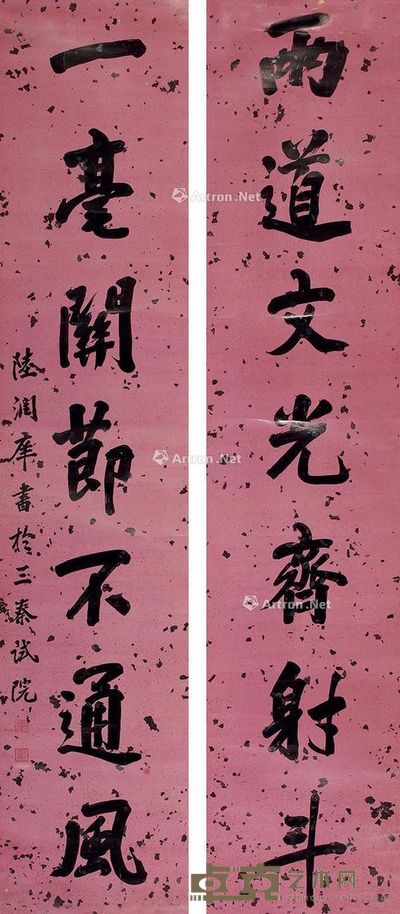 兩道文光齊射斗
一毫關節不通風
陸潤庠書於三秦試院
Artron.Net
Artron.Net
Artron.Net
艺术网